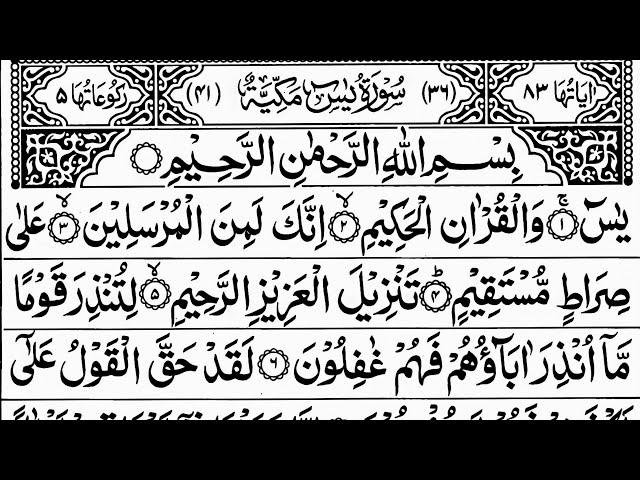 اٰیَاتُهَا ٨٣ (٣٦) سُوْرَةُ یٰسٓ مَكِّیَّةٌ (٤١) رُكُوْعَاتُهَا ٥
بِسْمِ اللّٰهِ الرَّحْمٰنِ الرَّحِیْمِ
یٰسٓ ۚ﴿١﴾ وَالْقُرْاٰنِ الْحَكِیْمِ ۙ﴿٢﴾ اِنَّكَ لَمِنَ الْمُرْسَلِیْنَ ۙ﴿٣﴾ عَلٰی
صِرَاطٍ مُّسْتَقِیْمٍ ؕ﴿٤﴾ تَنْزِیْلَ الْعَزِیْزِ الرَّحِیْمِ ۙ﴿٥﴾ لِتُنْذِرَ قَوْمًا
مَّاۤ اُنْذِرَ اٰبَآؤُهُمْ فَهُمْ غٰفِلُوْنَ ﴿٦﴾ لَقَدْ حَقَّ الْقَوْلُ عَلٰۤی